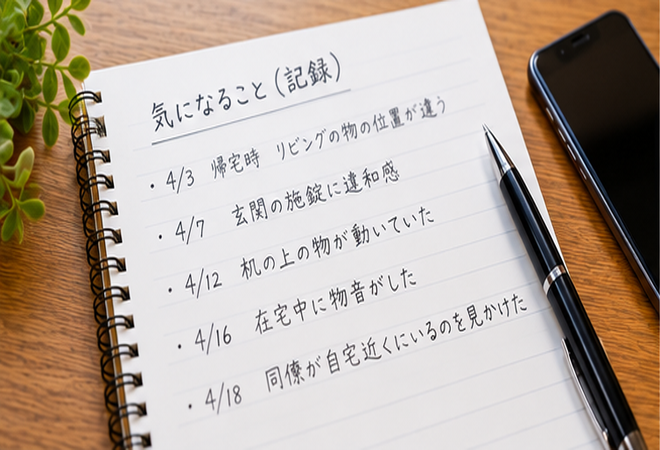 気になること(記録)
・4/3 帰宅時 リビングの物の位置が違う
・4/7 玄関の施錠に違和感
・4/12 机の上の物が動いていた
・4/16 在宅中に物音がした
・4/18 同僚が自宅近くにいるのを見かけた